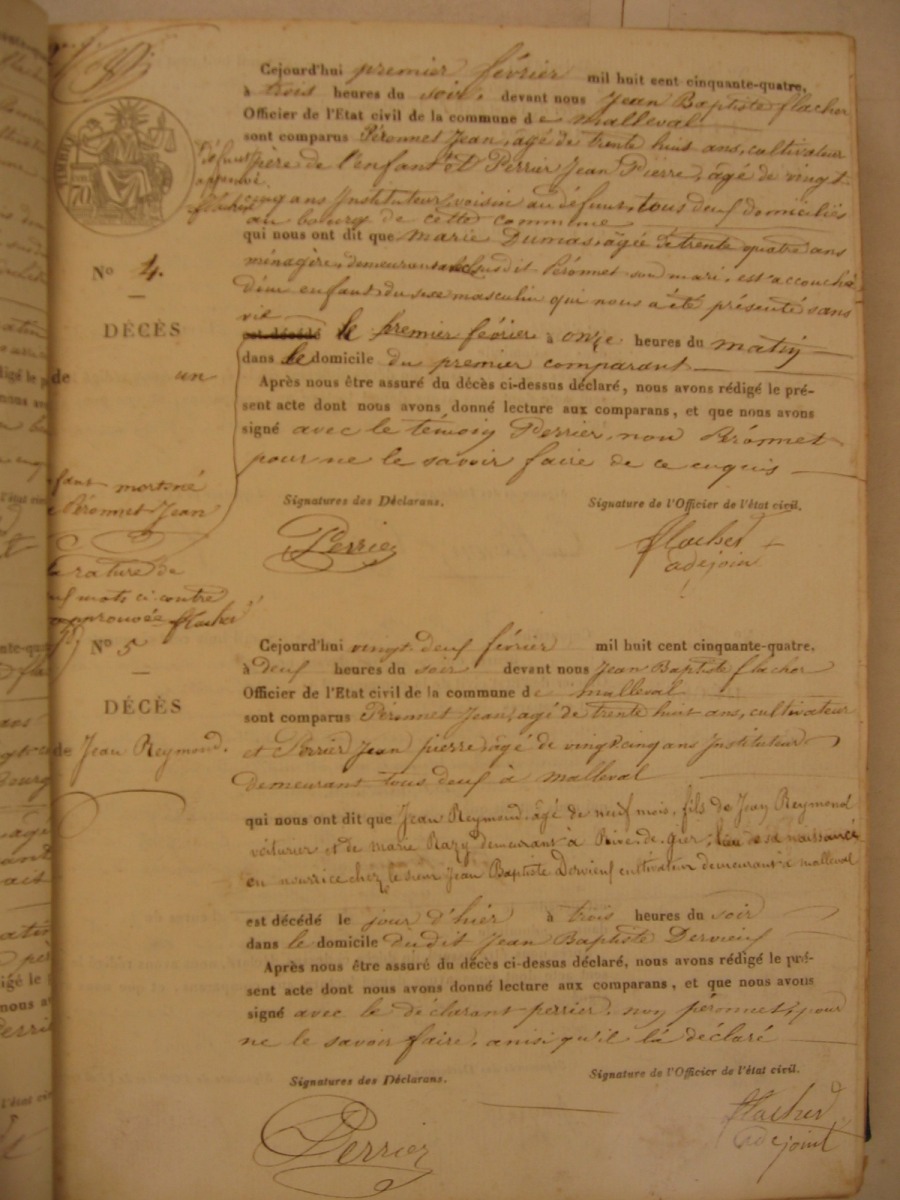 Cejourd'hui premier février mil huit cent cinquante-quatre,
à trois heures du soir, devant nous Jean Baptiste flacher
Officier de l'Etat civil de la commune de malleval
sont comparus Péronnet Jean, âgé de trente huit ans, cultivateur
père de l'enfant et Perrier Jean Pierre, âgé de vingt
cinq ans Instituteur, voisin au défunt, tous deux domiciliés
au bourg de cette commune
qui nous ont dit que marie Dumas, âgée de trente quatre ans
ménagère, demeurant susdit Péronnet son mari, est accouchée
d'un enfant du sexe masculin qui nous a été présenté sans
vie
est décédé le premier février à onze heures du matin
dans le domicile du premier comparant
Après nous être assuré du décès ci-dessus déclaré, nous avons rédigé le pré-
sent acte dont nous avons donné lecture aux comparans, et que nous avons
signé avec le témoin Perrier, non Péronnet
pour ne le savoir faire de ce enquis
Signatures des Déclarans.
Signature de l'Officier de l'état civil.
Perrier
flacher
adejoint
Défunt
approuvé
flacher
TIMBRE
N° 4.
DÉCÈS
de un
enfant mortné
Péronnet Jean
la rature de
mots ci contre
approuvée flacher
N° 5
DÉCÈS
de Jean Reymond.
Cejourd'hui vingt deux février mil huit cent cinquante-quatre,
à deux heures du soir devant nous Jean Baptiste flacher
Officier de l'Etat civil de la commune de malleval
sont comparus Péronnet Jean, âgé de trente huit ans, cultivateur
et Perrier Jean pierre âgé de vingt cinq ans Instituteur
demeurant tous deux à malleval
qui nous ont dit que Jean Reymond, âgé de neuf mois, fils de Jean Reymond
voiturier et de marie Razy demeurant à Rive-de-gier, lieu de sa naissance
en nourrice chez le sieur Jean Baptiste Dervieux cultivateur demeurant à malleval
est décédé le jour d'hier à trois heures du soir
dans le domicile dudit Jean Baptiste Dervieux
Après nous être assuré du décès ci-dessus déclaré, nous avons rédigé le pré-
sent acte dont nous avons donné lecture aux comparans, et que nous avons
signé avec le déclarant perrier, non péronnet, pour
ne le savoir faire, ainsi qu'il l'a déclaré
Signatures des Déclarans.
Signature de l'Officier de l'état civil.
Perrier
flacher
adejoint